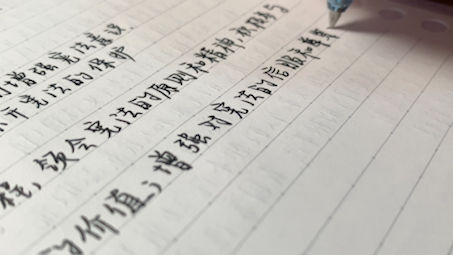 增强宪法意识
开宪法的保护
程，领会宪法的原则和精神，积极参与
的价值；增强对宪法的信服和尊崇